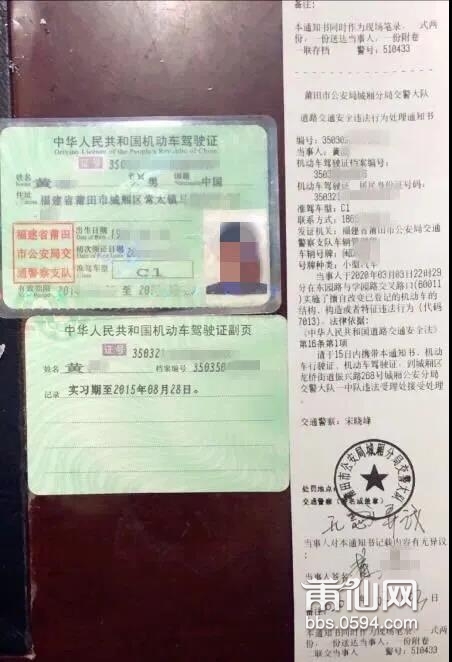 中华人民共和国机动车驾驶证
Driving License of the People's Republic of China
证号 350
姓名 黄 男 国籍 中国
福建省莆田市城厢区常太镇
福建省莆田
市公安局交
通警察支队
出生日期 19
初次领证日期 20
准驾车型 C1
有效期限 20 至 20
中华人民共和国机动车驾驶证副页
证号 350321
姓名 黄 档案编号 350350
记录 实习期至2015年08月28日。
备注：
本通知书同时作为现场笔录，一式两
份，一份送达当事人，一份附卷
一联存档 警号：510433
莆田市公安局城厢分局交警大队
道路交通安全违法行为处理通知书
编号：35030
当事人：黄
机动车驾驶证档案编号：
35035
机动车驾驶证、居民身份证号码：
350321
准驾车型：C1
联系方式：186
发证机关：福建省莆田市公安局交
警察支队车辆管
车辆号牌：闽
号牌种类：小型汽车
当事人于2020年03月03日22时29
分在东园路与学园路交叉路口(60011
)实施了擅自改变已登记的机动车的
结构、构造或者特征违法行为（代码
7013)。法律依据：
《中华人民共和国道路交通安全法》
第16条第1项
请于15日内携带本通知书、机动
车行驶证、机动车驾驶证，到城厢区
龙桥街道振兴路268号城厢公安分局
交警大队一中队违法受理处接受处理
。
交通警察：宋晓峰
莆田市公安局城厢分局交警大队
处罚地点
交通警察（签名或盖章）
当事人对本通知书记载内容有无异议
当事人签名
备注：
本通知书同时作为现场笔录，一式两
份，一份送达当事人，一份附卷
一联交当事人 警号：510433
莆仙网
bbs.0594.com